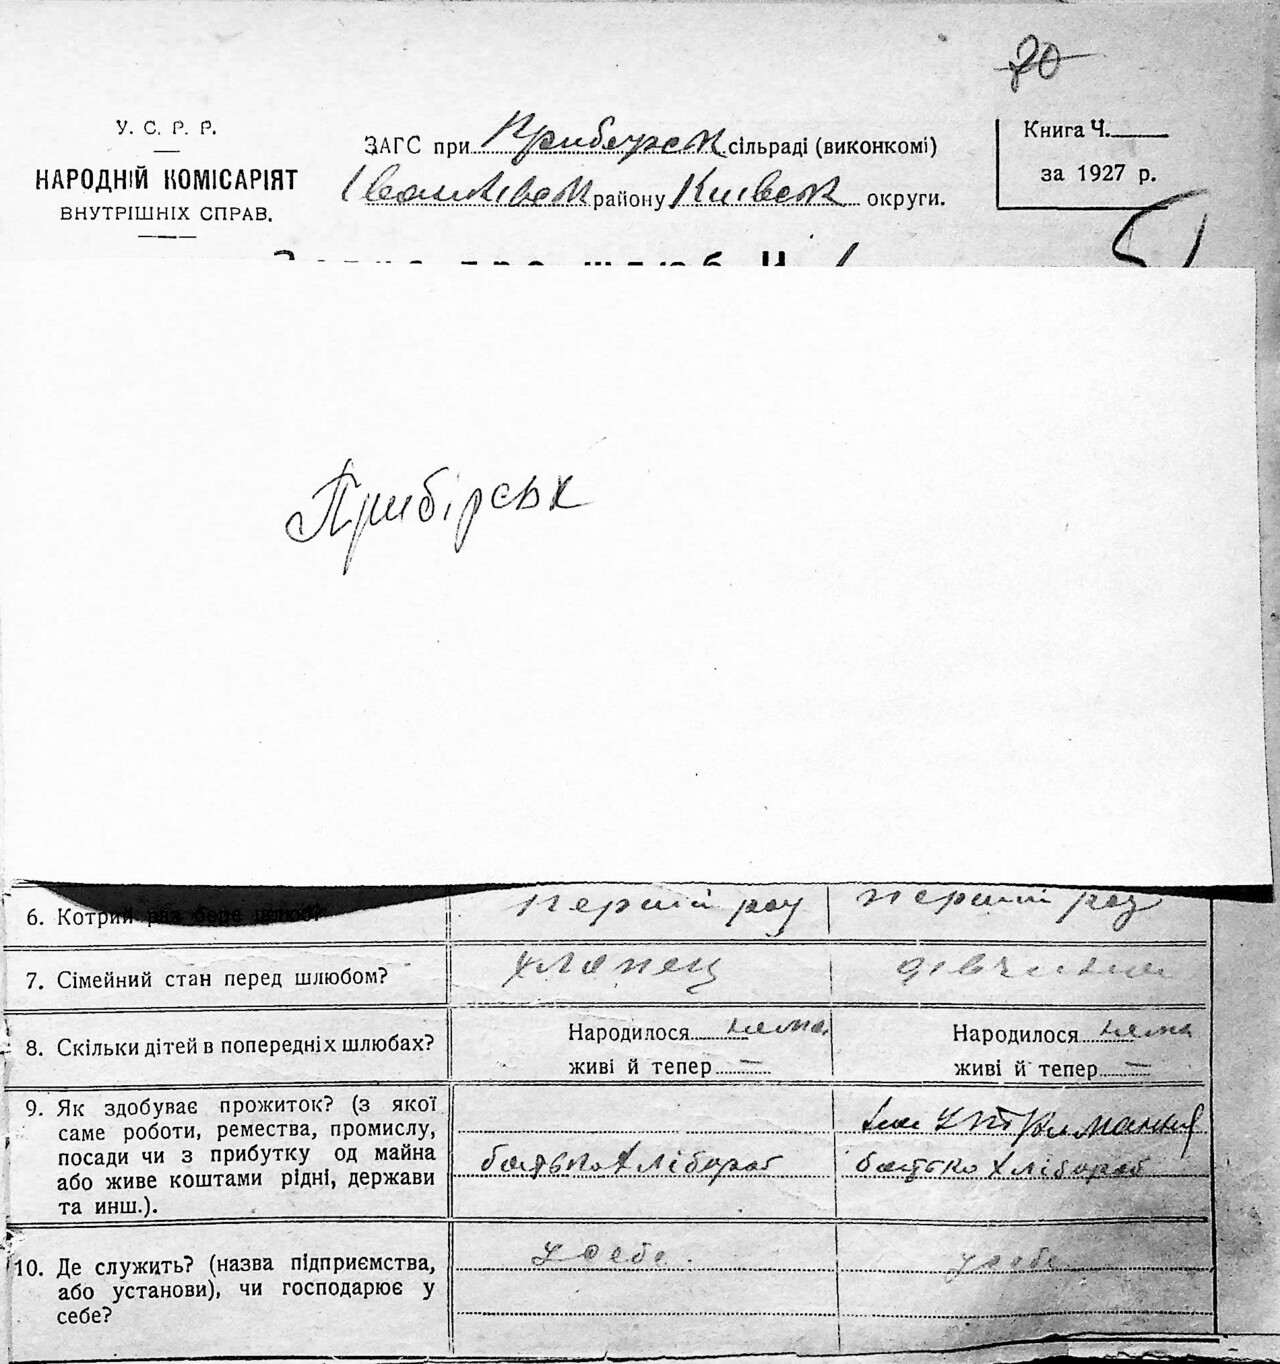 70
У. С. Р. Р.
НАРОДНІЙ КОМІСАРІЯТ
ВНУТРІШНІХ СПРАВ.
ЗАГС при Приберск сільраді (виконкомі)
Іванківск району Київск округи.
Книга Ч.
за 1927 р.
51
Запис про шлюб Ч. 1
Прибірськ
6. Котрий раз бере шлюб?
перший раз
перший раз
7. Сімейний стан перед шлюбом?
хлопец
дівчина
8. Скільки дітей в попередніх шлюбах?
Народилося нема
живі й тепер —
Народилося нема
живі й тепер —
9. Як здобуває прожиток? (з якої
саме роботи, ремества, промислу,
посади чи з прибутку од майна
або живе коштами рідні, держави
та инш.).
батько хлібороб
на утриманні
батько хлібороб
10. Де служить? (назва підприємства,
або установи), чи господарює у
себе?
у себе.
у себе